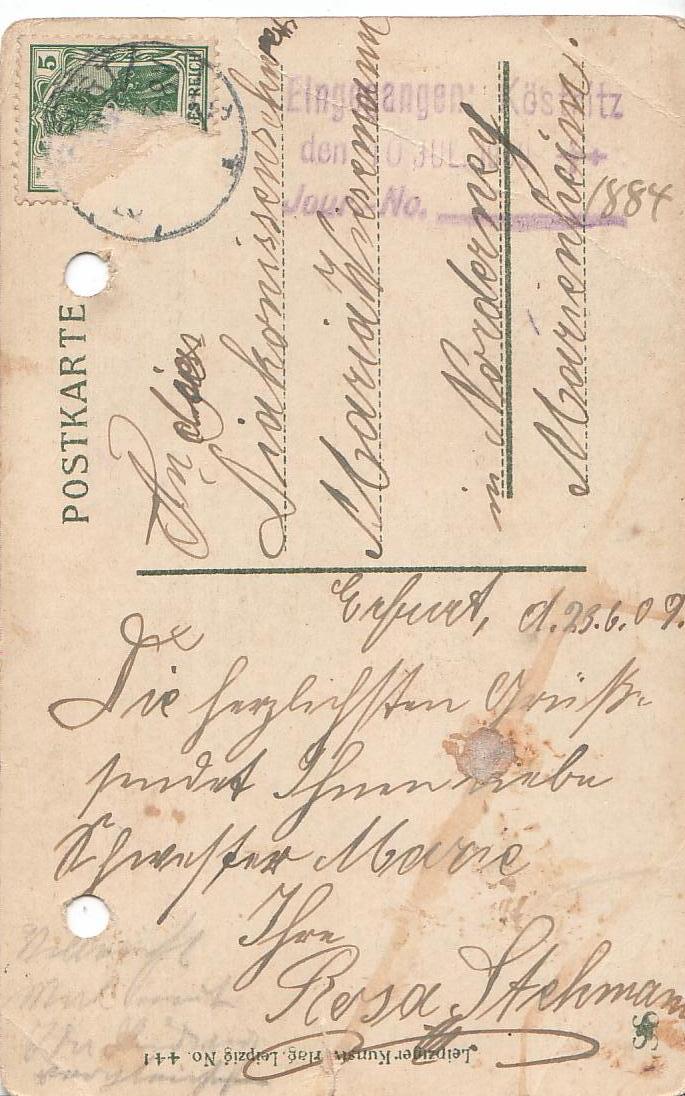 5
REICH
POSTKARTE
Eingegangen: Köstritz
den 10 JUL.
Journ. No. 1884
An die
Diakonissenschwester
Maria Wiesemann
in Norderney
Marienheim.
Erfurt, d. 23.6.09.
Die herzlichsten Grüße
sendet Ihnen liebe
Schwester Marie
Ihre
Rosa Stehmann
Leipziger Kunstverlag, Leipzig No. 441